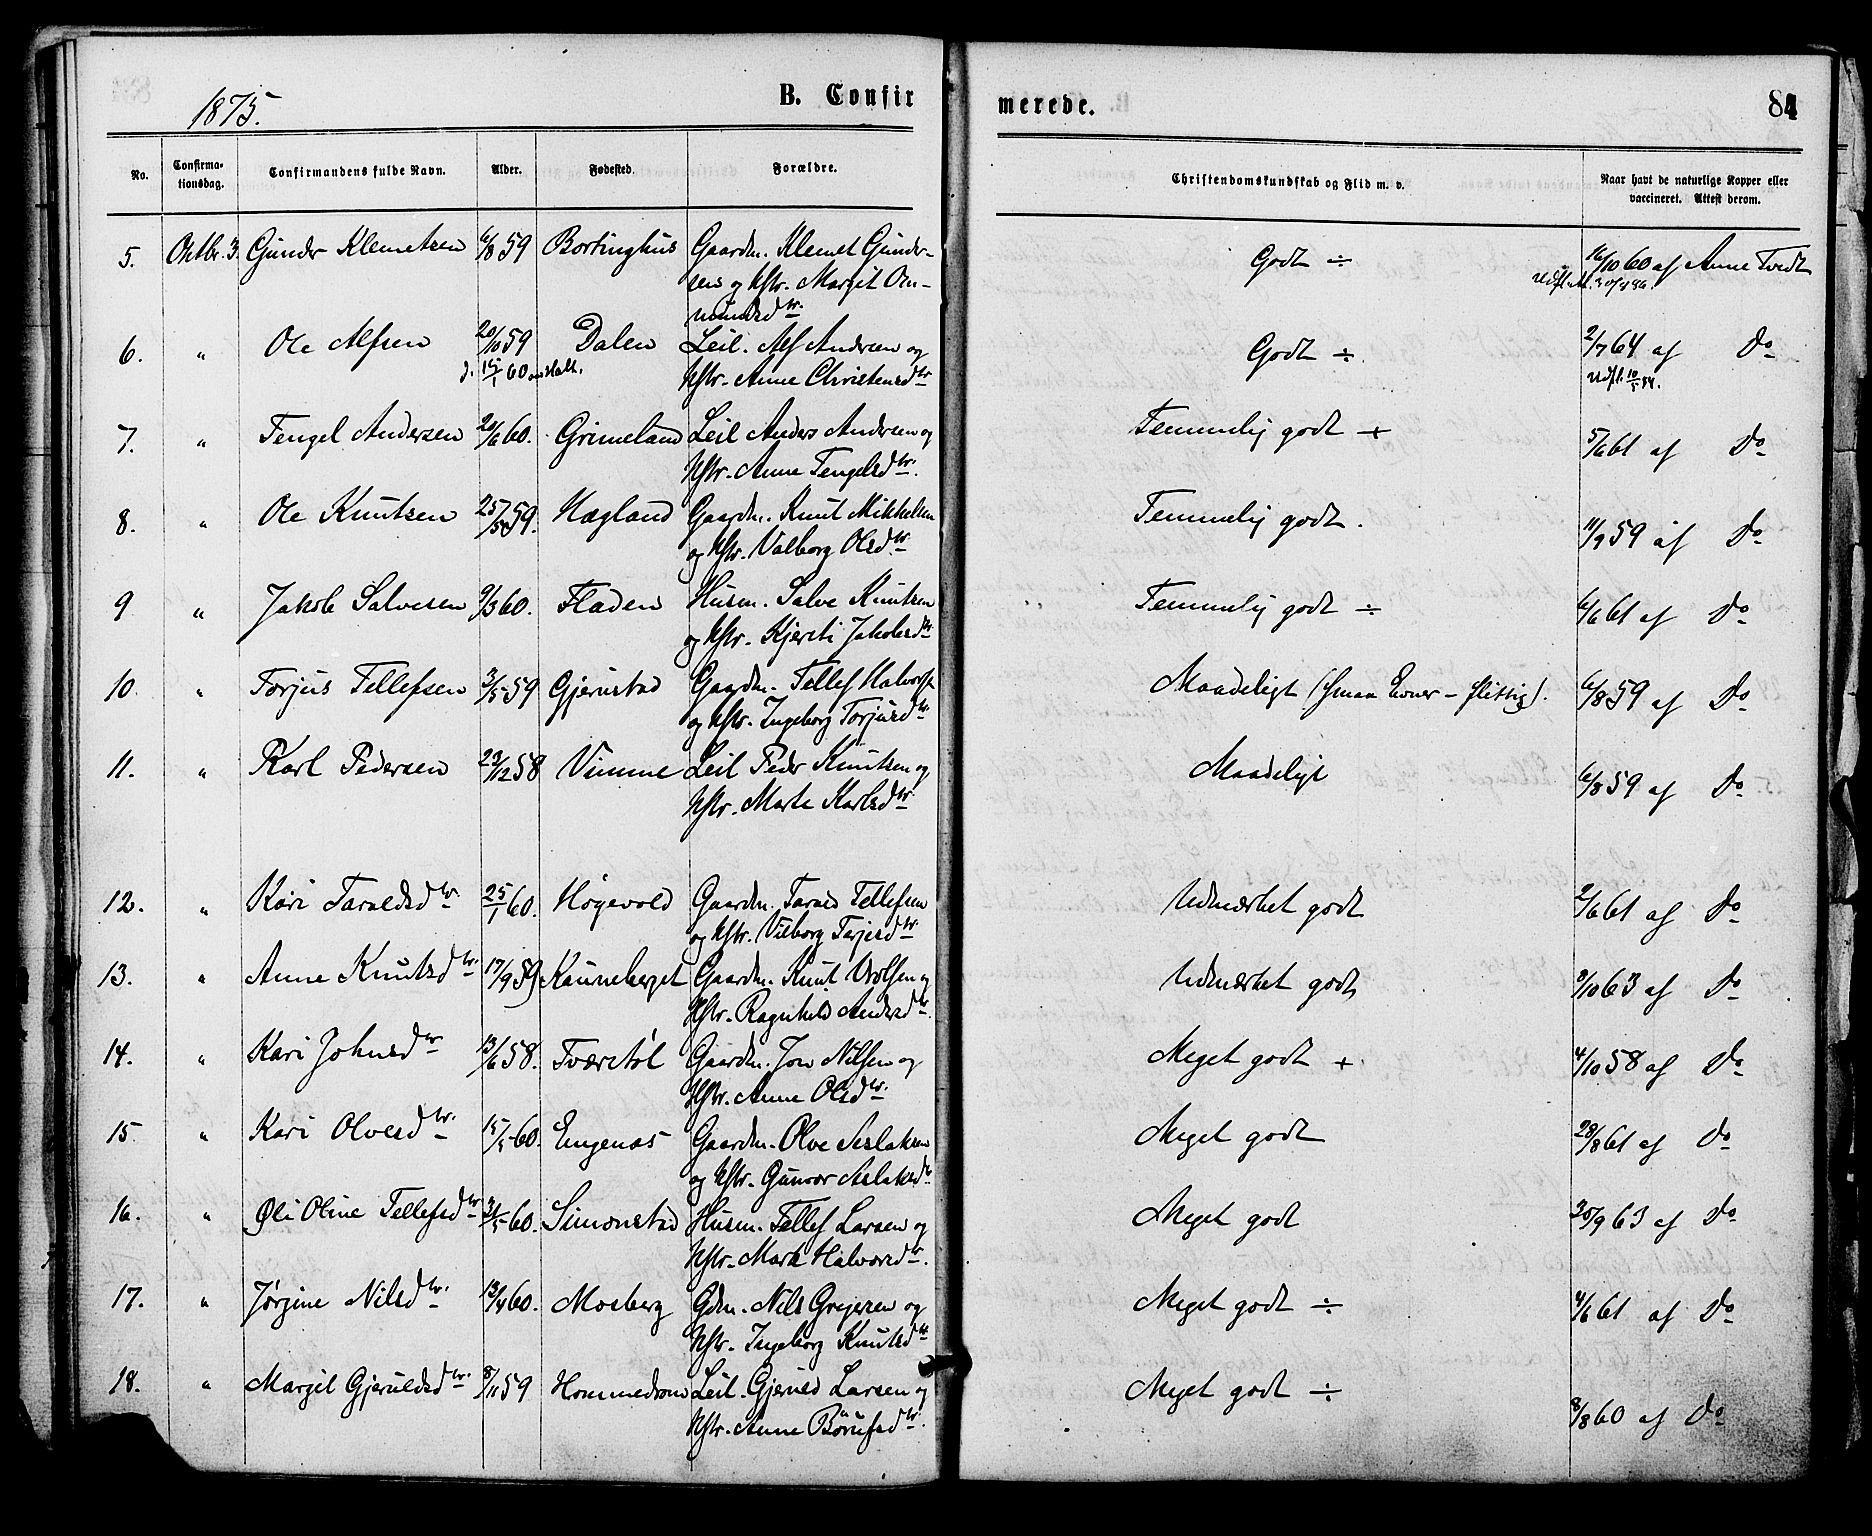 1875.
B. Confir
merede.
84
No.
Confirma-
tionsdag.
Confirmandens fulde Navn.
Alder.
Fødested.
Forældre.
Christendomskundskab og Flid m. v.
Naar havt de naturlige Kopper eller
vaccineret. Attest derom.
5. Octbr. 3. Gunder Klemetsen 6/8 59 Gaardm. Klemet Gunder- Godt ÷ 16/10 60 af Anne Tvedt
sen og Hstr. Margit Om-
mundsdtr.
6. " Ole Alfsen 20/10 59 Dalen Leil. Alf Andersen og Godt ÷ 2/7 64 af Do
d. 15/1 60 Hstr. Anne Christensdtr Udfl. 10/5 84.
7. " Tengel Andersen 20/6 60. Grimeland Leil Anders Andersen og Temmelig godt + 5/6 61 af Do
Hstr. Anne Tengelsdtr.
8. " Ole Knutsen 59. Hægland Gaardm. Knut Mikkelsen Temmelig godt. 11/9 59 af Do
og Hstr. Valborg Olsdtr
9 " Jakob Salvesen 9/3 60. Fladen Husm. Salve Knutsen Temmelig godt ÷ 6/6 61 af Do
og Hstr. Kjersti Jakobsdtr
10. " Torjus Tellefsen 3/5 59 Gjerustad Gaardm. Tellef Halvors. Maadeligt (smaa Evner – flittig). 6/8 59 af Do
og Hstr. Ingeborg Torjusdtr
11. " Karl Pedersen 23/12 58 Vimme Leil Peder Knutsen og Maadeligt 6/8 59 af Do
Hstr. Marte Karlsdtr
12. " Kari Taraldsdtr. 25/1 60. Høgevold Gaardm. Tarald Tellefsen Udmærket godt 2/6 61 af Do
og Hstr. Vilborg Terjesdtr
13. " Anne Knutsdtr. 17/9 59 Kauneberget Gaardm. Knut Wrolsen og Udmærket godt 3/10 63 af Do
Hstr. Ragnhild Andersdtr.
14. " Kari Johnsdtr 13/6 58. Tværstøl Gaardm. Jon Nilsen og Meget godt + 4/10 58 af Do
Hstr. Anne Olsdtr.
15 " Kari Olvesdtr. 15/5 60. Engenæs Gaardm. Olve Aslaksen Meget godt 28/8 61 af Do
og Hstr. Gunvor Aslaksdtr
16. " Oline Tellefsdtr. 60. Simonstad Husm. Tellef Larsen og Meget godt 30/9 63 af Do
Hstr. Halvorsdtr.
17. " Jørgine Nilsdtr. 13/4 60. Mosberg Gdm. Nils Gregersen og Meget godt ÷ 4/6 61 af Do
Hstr. Ingeborg Knutsdtr
18. " Margit Gjeruldsdtr. 8/11 59 Leil. Gjeruld Larsen og Meget godt ÷ 8/8 60 af Do
Hstr. Anne Børufsdtr.